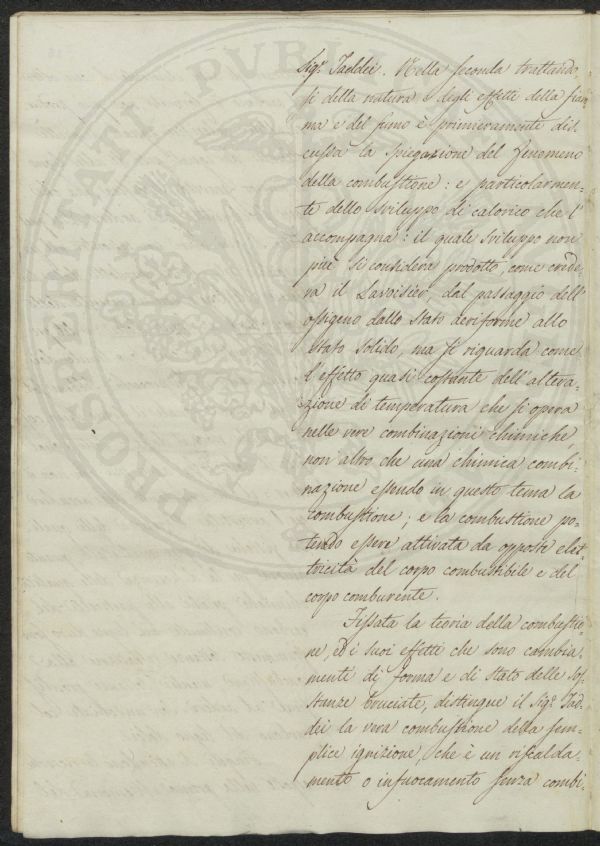 Sig.r Taddei. Nella seconda trattando-
si della natura e degli effetti della fiam
ma e del fumo è primieramente dis
cussa la spiegazione del fenomeno
della combustione: e particolarmen-
te dello sviluppo di calorico che l'
accompagna: il quale sviluppo non
più si considera prodotto, come crede
va il Lavoisier, dal passaggio dell'
ossigeno dallo stato aeriforme allo
stato solido, ma si riguarda come
l'effetto quasi costante dell'altera-
zione di temperatura che si opera
nelle vere combinazioni chimiche,
non altro che una chimica combi-
nazione essendo in questo tema la
combustione; e la combustione po-
tendo essere attivata da opposte elet-
tricità del corpo combustibile e del
corpo comburente.
Fissata la teoria della combustio
ne, ed i suoi effetti che sono cambia-
menti di forma e di stato delle sos-
tanze bruciate, distingue il Sig.r Tad-
dei la vera combustione della sem-
plice ignizione, che è un riscalda-
mento o infuocamento senza combi-
PROSPERITATI PVBLI